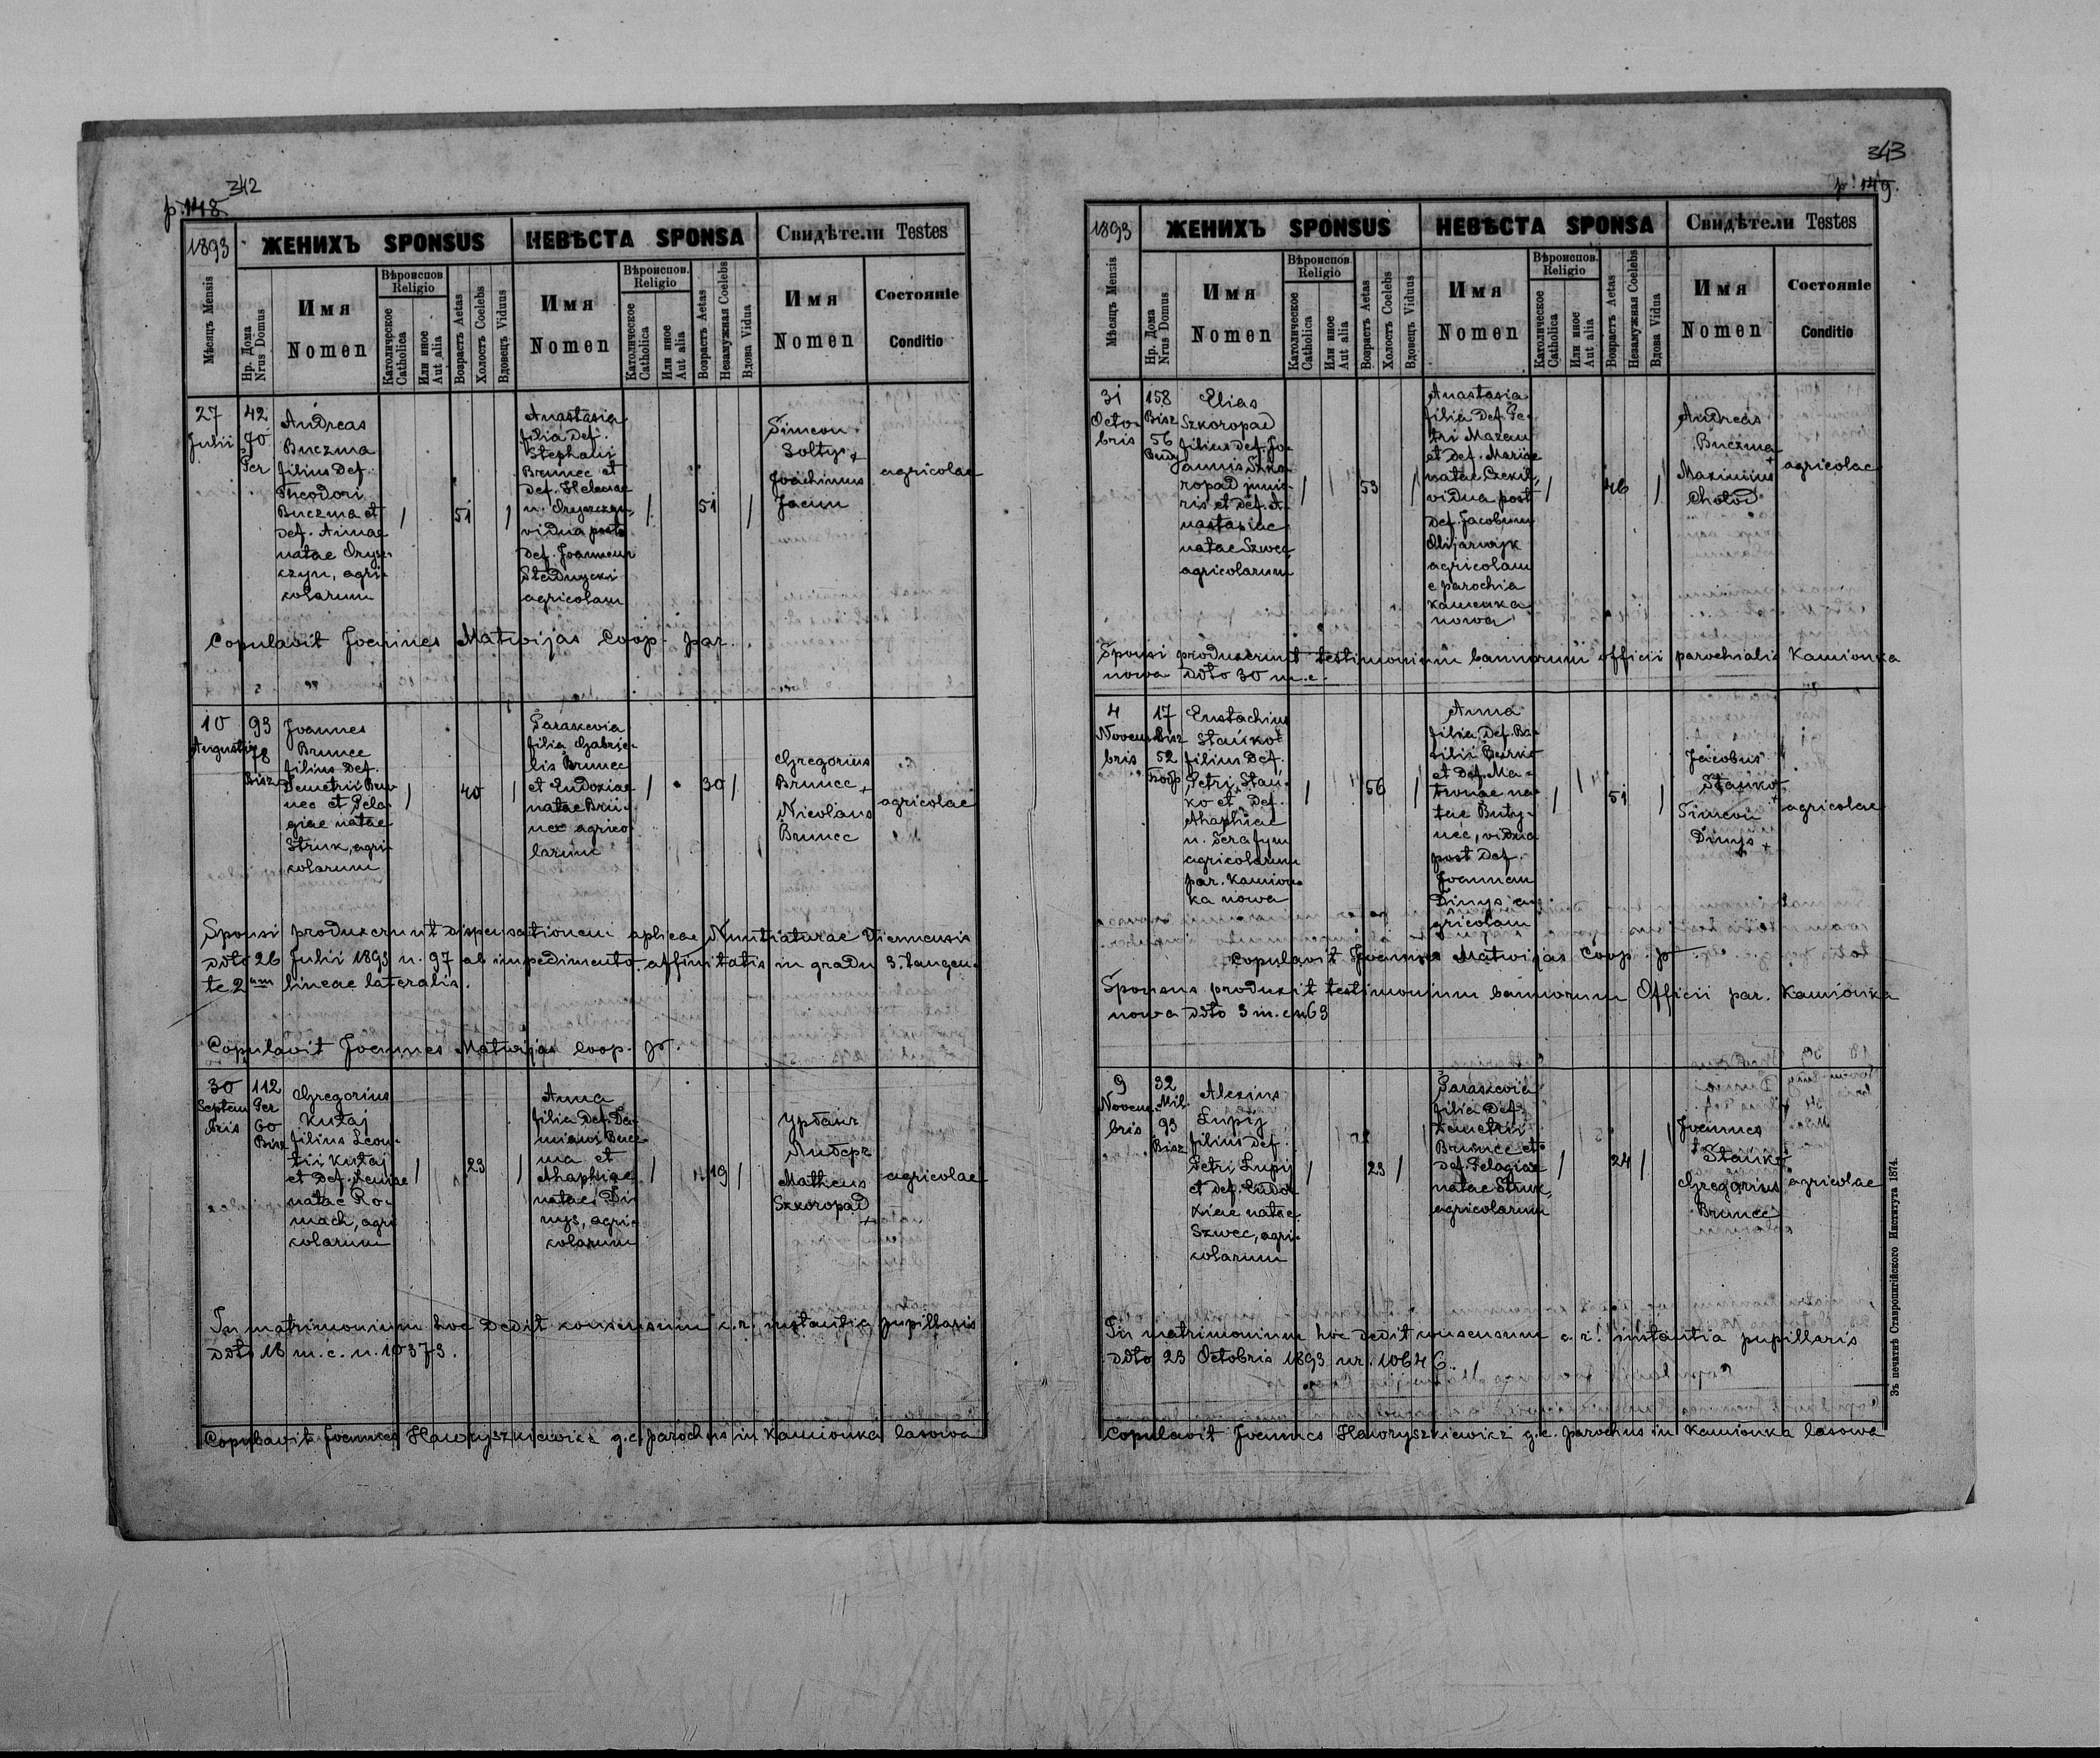 342
p. 148
1893
ЖЕНИХЪ SPONSUS
НЕВѢСТА SPONSA
Свидѣтели Testes
Мѣсяцъ Mensis
Нр. Дома
Nrus Domus
Имя
Nomen
Вѣроиспов.
Religio
Католическое
Catholica
Или иное
Aut alia
Возрастъ Aetas
Холостъ Coelebs
Вдовецъ Viduus
Имя
Nomen
Вѣроиспов.
Religio
Католическое
Catholica
Или иное
Aut alia
Возрастъ Aetas
Незамужная Coelebs
Вдова Vidua
Имя
Nomen
Состояніе
Conditio
27
Julii
42
70
Per
Andreas
Buczma
filius def.
Theodori
Buczma et
def. Annae
natae Orysz-
czyn, agri-
colarum
/ 51 /
Anastasia
filia def.
Stephani
Brunec et
def. Helenae
n. Oryszczyn,
vidua post
def. Joannem
Stadnycki
agricolam
/ 51 /
Simeon
Soltys +
Joachimus
Jacun
agricolae
Copulavit Joannes Matwijas Coop. par.
10
Augusti
93
78
Bisz
Joannes
Brunec
filius def.
Demetrii Bru-
nec et Pela-
giae natae
Struk, agri-
colarum
/ 40 /
Paraskevia
filia Gabrie-
lis Brunec
et Eudoxiae
natae Bru-
nec agrico-
larum
/ 30 /
Gregorius
Brunec +
Nicolaus
Brunec
agricolae
Sponsi produxerunt dispensationem aplicae Nuntiaturae Viennensis
ddto 26 Julii 1893 n. 97 ab impedimento affinitatis in gradu 3. tangen-
te 2um lineae lateralis.
Copulavit Joannes Matwijas coop. p.
30
Septem
bris
112
Per
60
Bisz
Gregorius
Kutaj
filius Leon-
tii Kutaj
et def. Xeniae
natae Ro-
mach, agri-
colarum
/ 23 /
Anna
filia def. Da-
miani Bucz-
ma et
Ahaphiae
natae Di-
nys, agri-
colarum
/ 19 /
Урбанъ
Matheus
Szkoropad
+
agricolae
In matrimonium hoc dedit consensum c. r. instantia pupillaris
ddto 18 m. c. n. 10373.
Copulavit Joannes Hawryszkiewicz g. c. parochus in Kamionka lasowa
343
p. 149.
1893
ЖЕНИХЪ SPONSUS
НЕВѢСТА SPONSA
Свидѣтели Testes
Мѣсяцъ Mensis
Нр. Дома
Nrus Domus
Имя
Nomen
Вѣроиспов.
Religio
Католическое
Catholica
Или иное
Aut alia
Возрастъ Aetas
Холостъ Coelebs
Вдовецъ Viduus
Имя
Nomen
Вѣроиспов.
Religio
Католическое
Catholica
Или иное
Aut alia
Возрастъ Aetas
Незамужная Coelebs
Вдова Vidua
Имя
Nomen
Состояніе
Conditio
31
Octo-
bris
158
Bisz
56
Budy
Elias
Szkoropad
filius def. Jo-
annis Szko-
ropad junio-
ris et def. A-
nastasiae
natae Szwec,
agricolarum
/ 53 /
Anastasia
filia def. Pe-
tri Mazem
et def. Mariae
natae
vidua post
def. Jacobum
Olijarnyk
agricolam
e parochia
Kamionka
nowa
/ 46 /
Andreas
Buczma +
Maximius
Cholod
agricolae
Sponsi produxerunt testimonium bannorum officii parochialis Kamionka
nowa ddto 30 m. c.
4
Novem-
bris
17
Bisz
52
Eustachius
Stańko
filius def.
Petri Stań-
ko et def.
Ahaphiae
n. Serafym
agricolarum
par. Kamion-
ka nowa
/ 56 /
Anna
filia def. Ba-
silii Burko
et def. Ma-
tronae na-
tae Buty-
nec, vidua
post def.
Joannem
Dinys a-
gricolam
/ 51 /
Jacobus
Stańko +
Simeon
Dinys +
agricolae
Copulavit Joannes Matwijas Coop. p
Sponsus produxit testimonium bannorum Officii par. Kamionka
nowa ddto 3 m. c. n 63
9
Novem-
bris
32
Mil.
93
Bisz
Alexius
Lupij
filius def.
Petri Lupij
et def. Eudo-
xiae natae
Szwec, agri-
colarum
/ 23 /
Paraskevia
filia def.
Demetrii
Brunec et
def. Pelagiae
natae Struk,
agricolarum
/ 24 /
Joannes
Stańko
Gregorius
Brunec
agricolae
In matrimonium hoc dedit consensum c. r. instantia pupillaris
ddto 23 Octobris 1893 nr. 10646.
Copulavit Joannes Hawryszkiewicz g. c. parochus in Kamionka lasowa
Зъ печатнѣ Ставропигійского Института 1874.